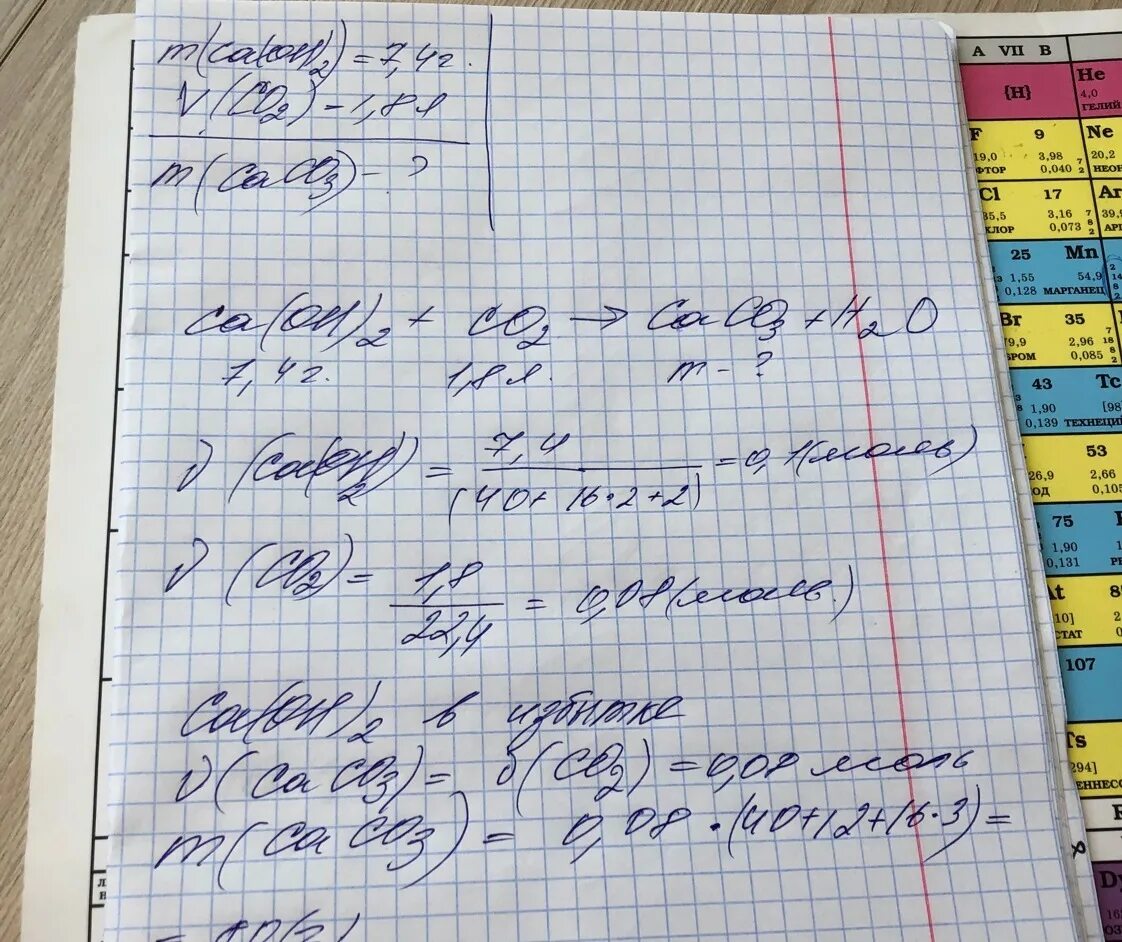 m(Ca(OH)2) = 7,4г.
V(CO2) - 1,8л
m(CaCO3) - ?
Ca(OH)2 + CO2 → CaCO3 + H2O
7,4г. 1,8л. m - ?
ν(Ca(OH)2) = 7,4 / (40 + 16·2 + 2) = 0,1(моль)
ν(CO2) = 1,8 / 22,4 = 0,08(моль.)
Ca(OH)2 в избытке
ν(CaCO3) = ν(CO2) = 0,08 моль
m(CaCO3) = 0,08 · (40+12+16·3) =
A VII B
{H}
He
4,0
ГЕЛИЙ
F 9
19,0 3,98
ФТОР 0,040 7 2
Ne
20,2
НЕОН
Cl 17
35,5 3,16
ХЛОР 0,073 7 8 2
Ar
39,9
25 Mn
1,55 54,9
0,128 МАРГАНЕЦ
Br 35
79,9 2,96
БРОМ 0,085 7 18 8 2
43 Tc
1,90 [98]
0,139 ТЕХНЕЦИЙ
53
26,9 2,66
ЙОД 0,105
75
1,90
0,131
At
[210]
АСТАТ
107
Ts
[294]
ТЕННЕССИ
Dy